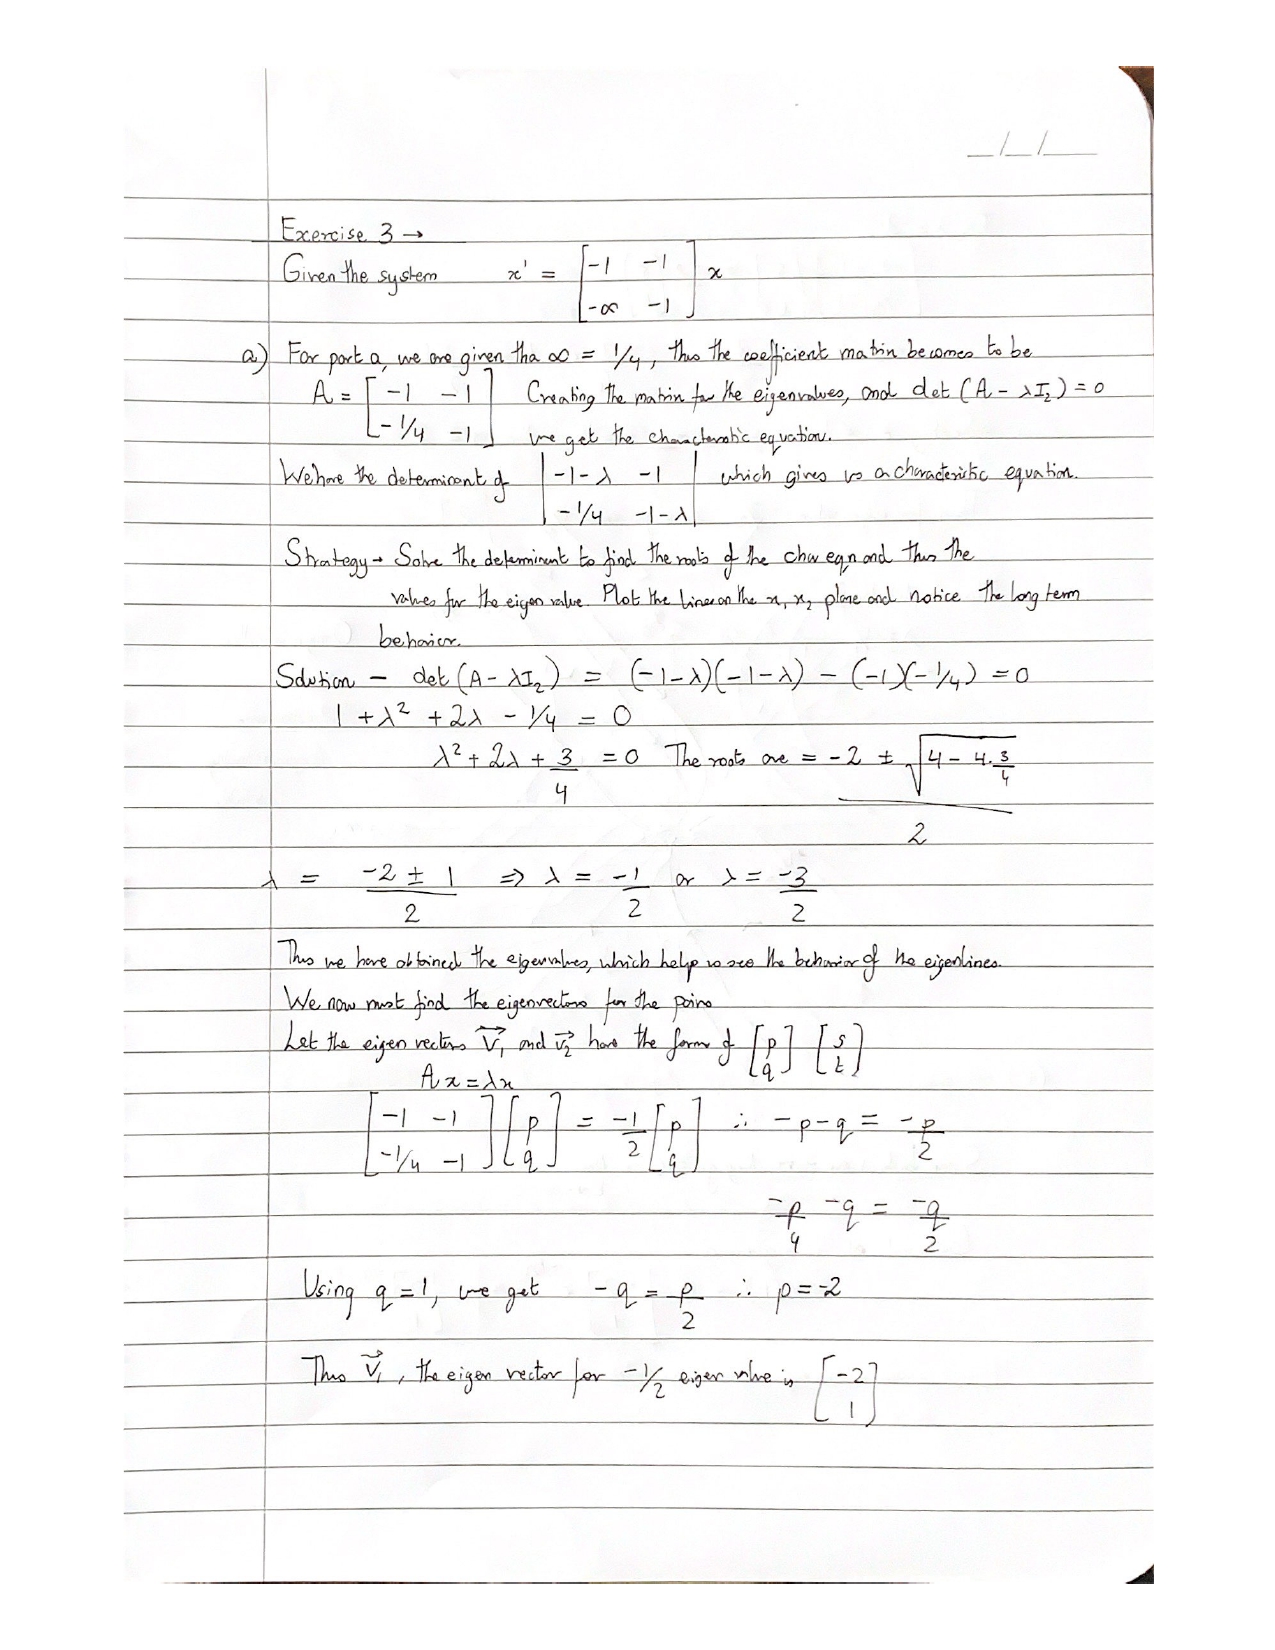 _/_/__
Exercise 3 →
Given the system x' = [-1 -1; -∝ -1] x
a) For part a, we are given tha ∝ = 1/4, thus the coefficient matrix becomes to be
A = [-1 -1; -1/4 -1] Creating the matrix for the eigenvalues, and det (A - λI₂) = 0
we get the characteristic equation.
We have the determinant of |-1-λ -1; -1/4 -1-λ| which gives us a characteristic equation.
Strategy → Solve the determinant to find the roots of the char eqn and thus the
values for the eigen value. Plot the lines on the x₁ x₂ plane and notice the long term
behavior.
Solution - det (A - λI₂) = (-1-λ)(-1-λ) - (-1)(-1/4) = 0
1 + λ² + 2λ - 1/4 = 0
λ² + 2λ + 3/4 = 0 The roots are = (-2 ± √(4 - 4.3/4))/2
λ = (-2 ± 1)/2 ⇒ λ = -1/2 or λ = -3/2
Thus we have obtained the eigenvalues, which help us see the behavior of the eigenlines.
We now must find the eigenvectors for the pairs
Let the eigen vectors V₁ and v₂ have the form of [p; q] [s; t]
Ax = λx
[-1 -1; -1/4 -1] [p; q] = -1/2 [p; q] ∴ -p-q = -p/2
-p/4 -q = -q/2
Using q = 1, we get -q = p/2 ∴ p = -2
Thus V₁, the eigen vector for -1/2 eigen value is [-2; 1]